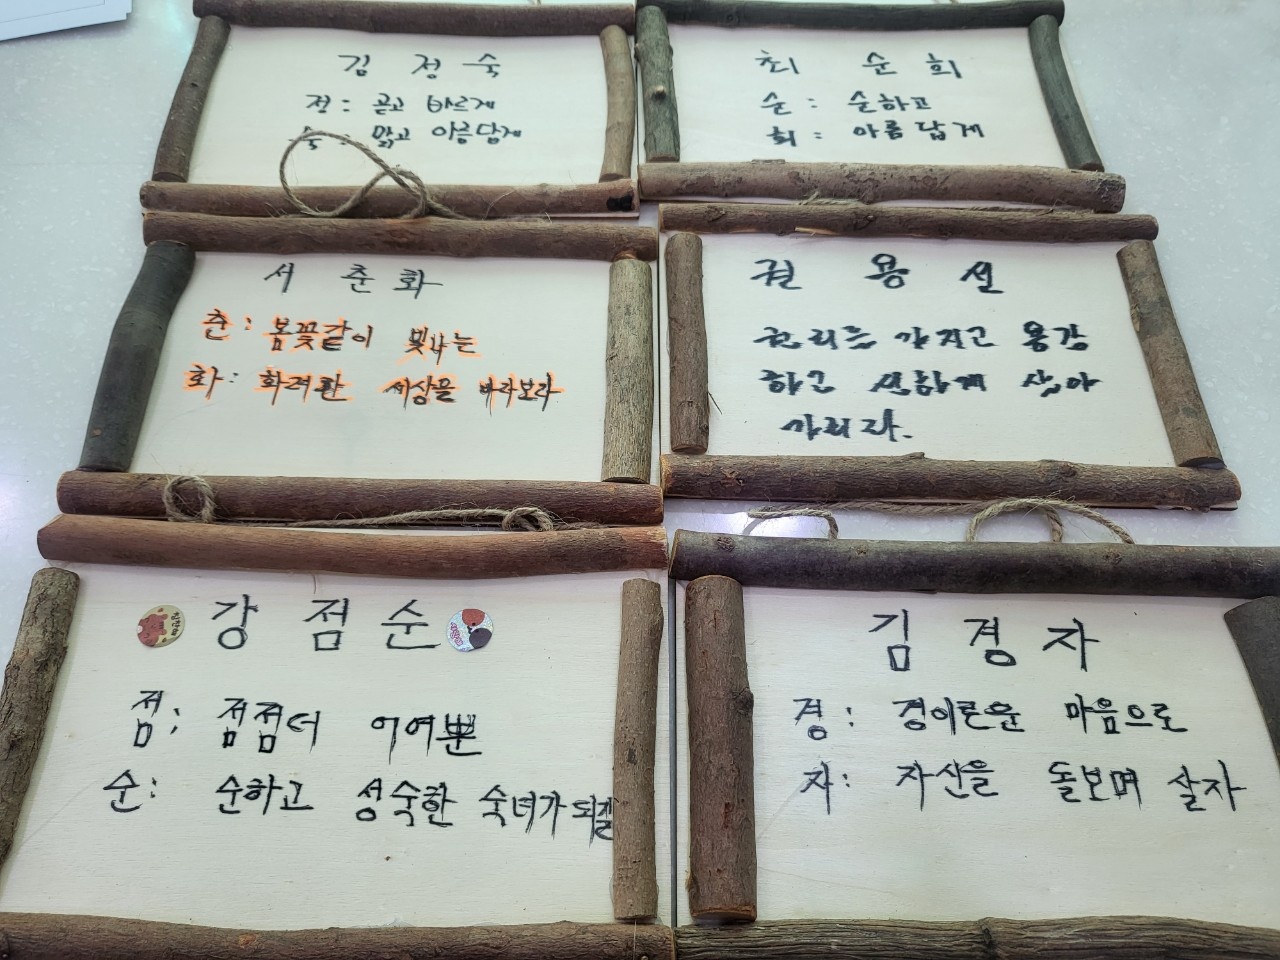 김 정 숙
정: 곧고 바르게
숙: 맑고 아름답게
최 순 희
순: 순하고
희: 아름답게
서 춘 화
춘: 봄꽃같이 빛나는
화: 화려한 세상을 바라보라
권 용 선
권리를 가지고 용감
하고 선하게 살아
가리라.
강 점 순
점: 점점더 어여뿐
순: 순하고 성숙한 숙녀가
김 경 자
경: 경이로운 마음으로
자: 자신을 돌보며 살자